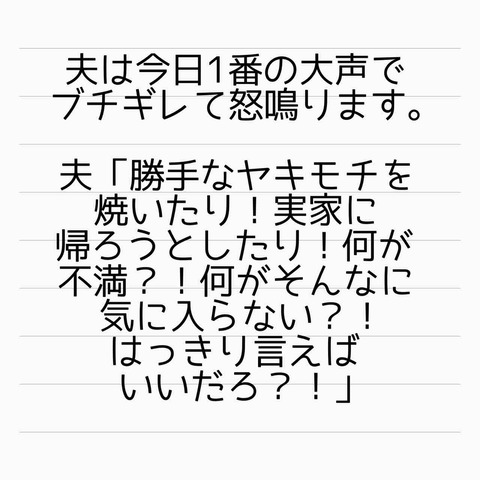 夫は今日1番の大声で
ブチギレて怒鳴ります。
夫「勝手なヤキモチを
焼いたり！実家に
帰ろうとしたり！何が
不満？！何がそんなに
気に入らない？！
はっきり言えば
いいだろ？！」